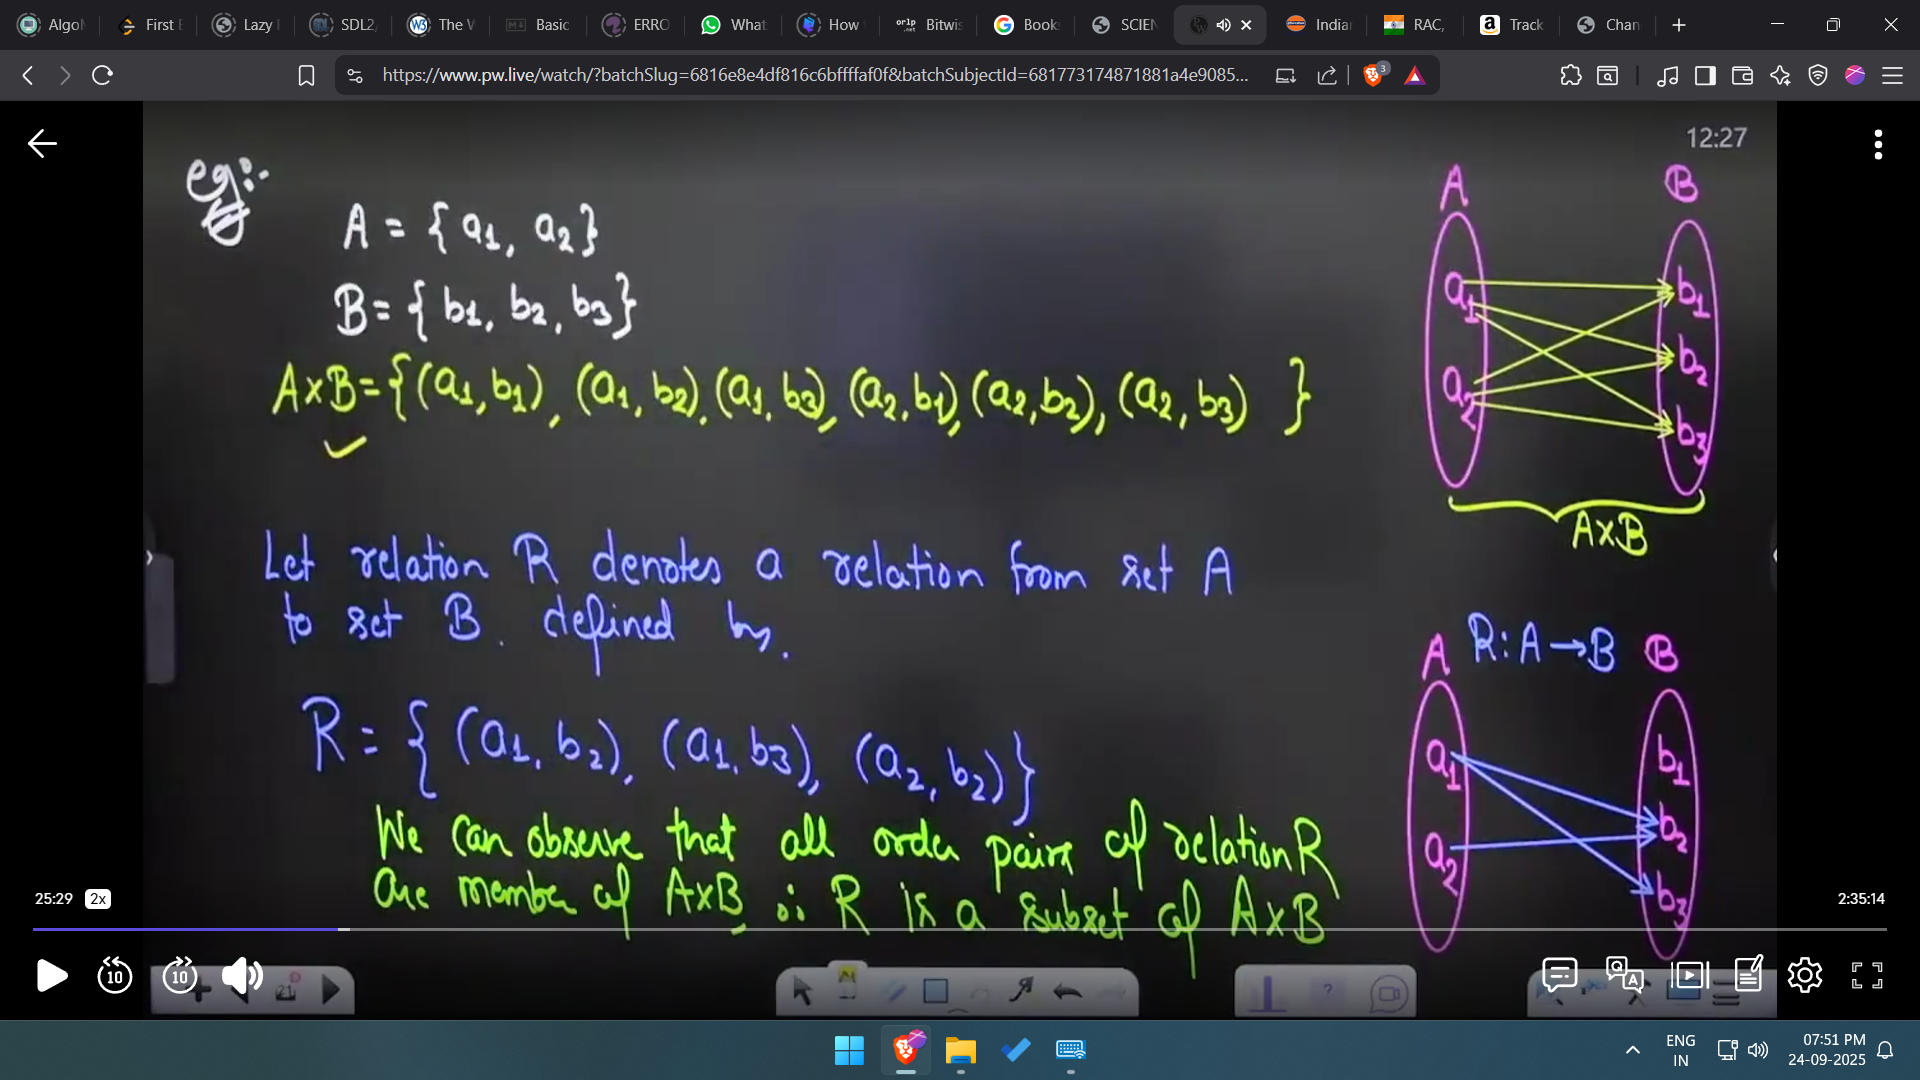 AlgoM
First E
Lazy
SDL2
The V
Basic
ERRO
What
How
Bitwis
Book
SCIEN
India
RAC,
Track
Chan
https://www.pw.live/watch/?batchSlug=6816e8e4df816c6bffffaf0f&batchSubjectId=681773174871881a4e9085...
3
12:27
eg:-
A = { a1, a2}
B = { b1, b2, b3}
AxB={(a1,b1), (a1,b2), (a1,b3), (a2,b1), (a2,b2), (a2,b3) }
A
B
a1
a2
b1
b2
b3
AxB
Let relation R denotes a relation from set A
to set B. defined by.
R = { (a1, b2), (a1, b3), (a2, b2)}
We can observe that all order pairs of relation R
are member of AxB ∴ R is a subset of AxB
R: A→B
A
B
a1
a2
b1
b2
b3
25:29
2x
2:35:14
10
10
21
?
ENG
IN
07:51 PM
24-09-2025